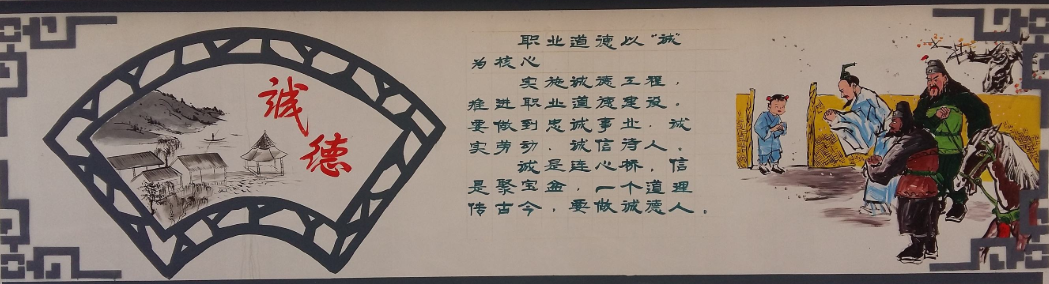 诚
德
职业道德以“诚”
为核心
实施诚德工程，
推进职业道德建设。
要做到忠诚事业，诚
实劳动，诚信待人。
诚是连心桥，信
是聚宝盆，一个道理
传古今，要做诚德人。